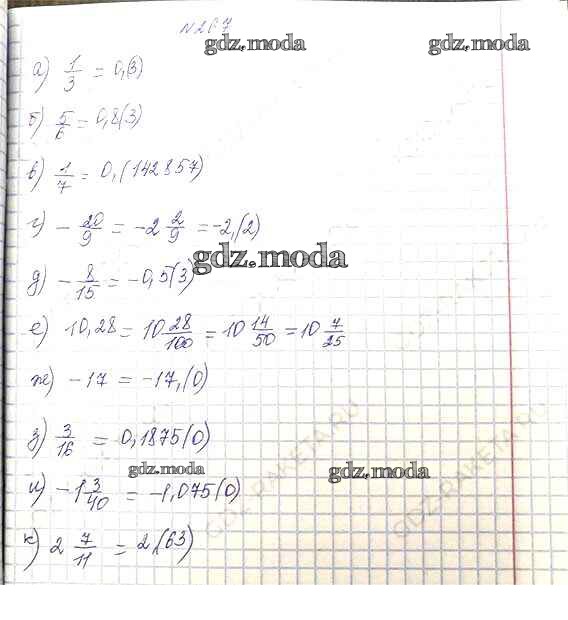 №267
gdz.moda gdz.moda
а) 1/3 = 0,(3)
б) 5/6 = 0,8(3)
в) 1/7 = 0,(142857)
г) - 20/9 = -2 2/9 = -2,(2)
gdz.moda
д) - 8/15 = -0,5(3)
е) 10,28 = 10 28/100 = 10 14/50 = 10 7/25
ж) -17 = -17,(0)
з) 3/16 = 0,1875(0)
gdz.moda gdz.moda
и) -1 3/40 = -1,075(0)
GDZ-RAKETA.RU GDZ-RAKETA.RU
к) 2 7/11 = 2,(63)